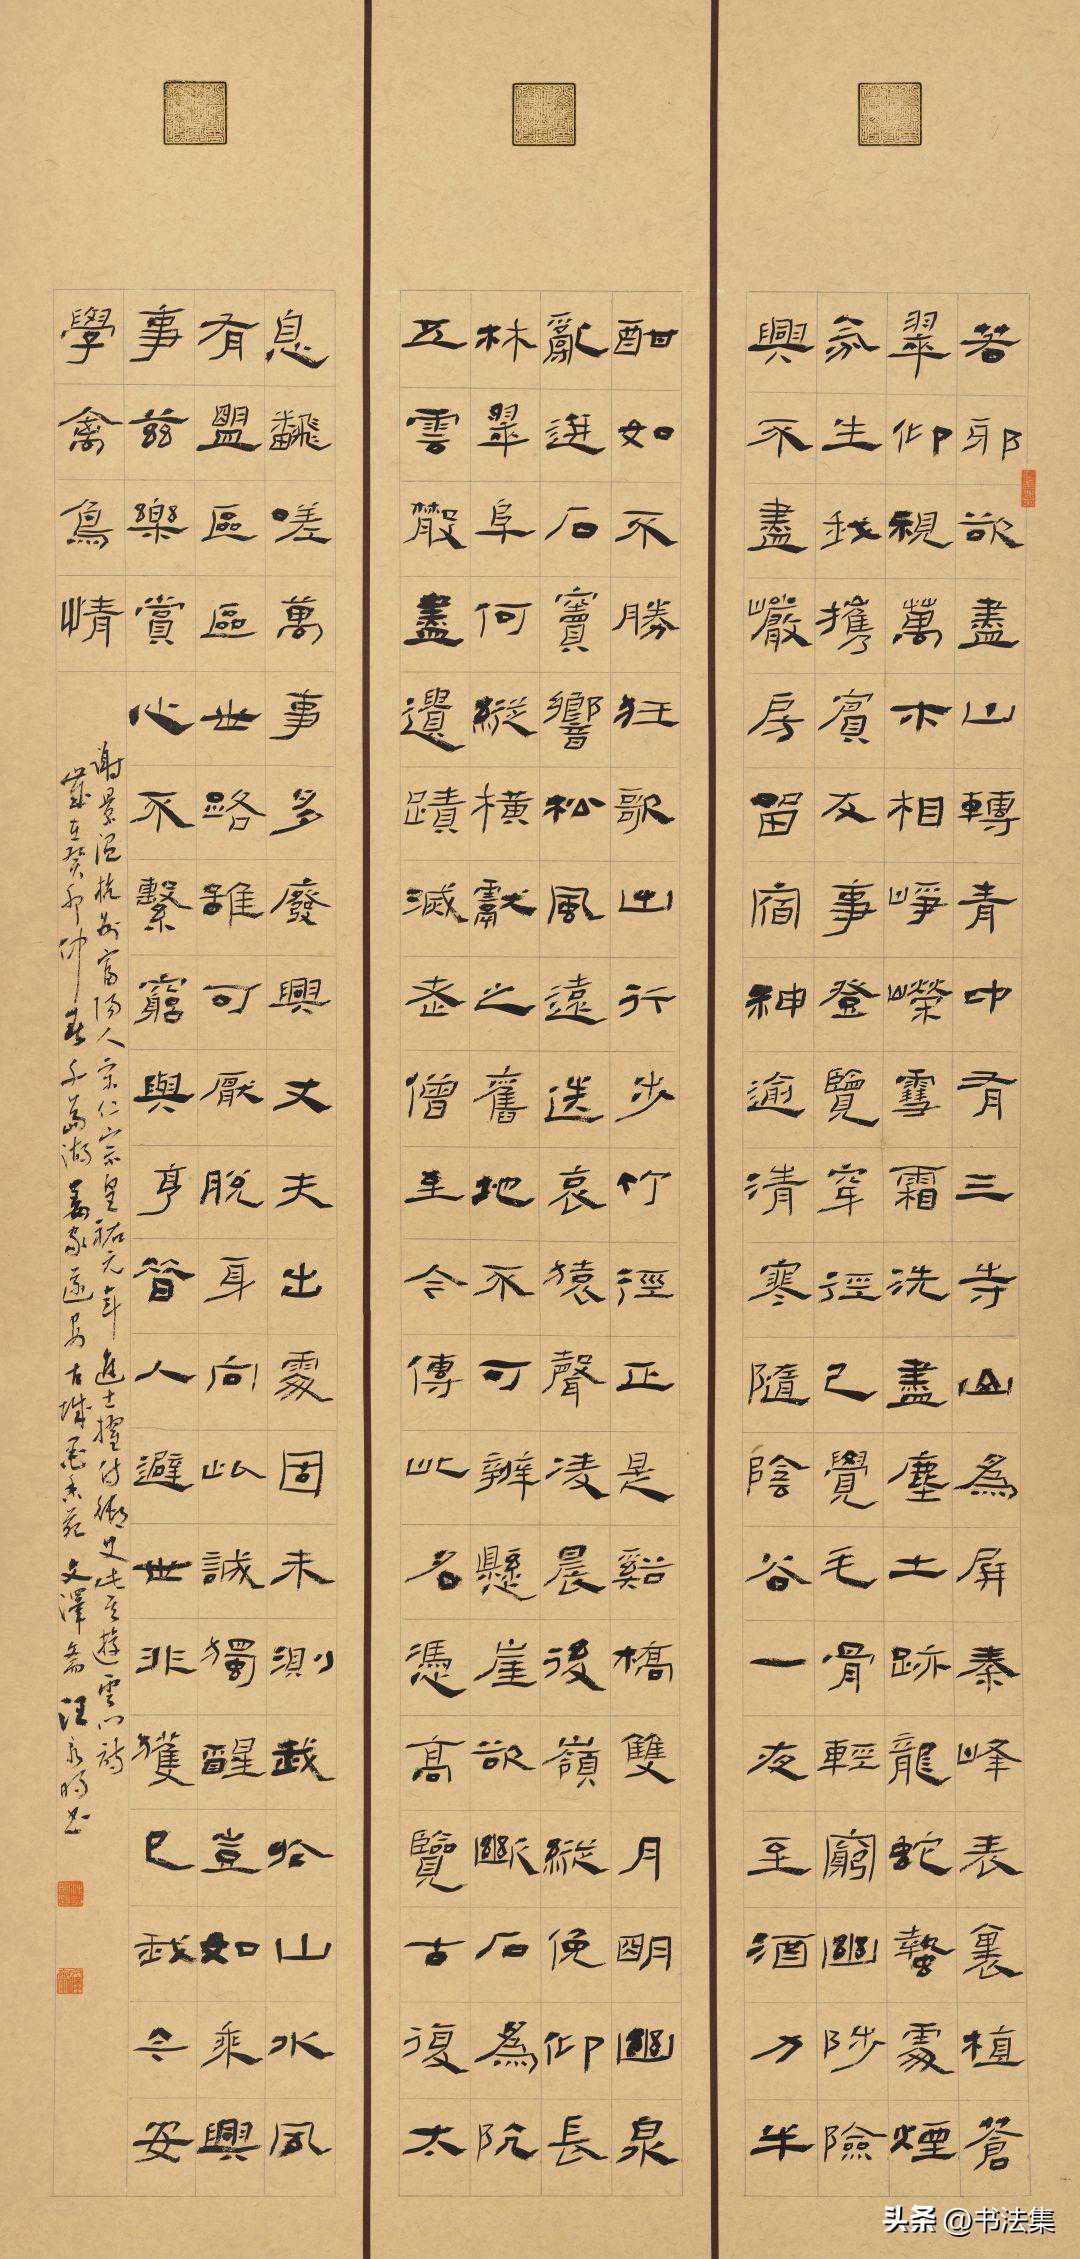 若邪欲盡山轉青中有三寺山為屏秦峰表裏植蒼
翠仰視萬木相崢嶸雪霜洗盡塵土跡龍蛇蟄處煙
氛生我攜賓友事登覽穿徑已覺毛骨輕窮幽陟險
興不盡巖房留宿神逾清寒隨陰谷一夜至酒力半
酣如不勝狂歌出行步竹徑正是谿橋雙月明幽泉
亂迸石竇響松風遠送哀猿聲凌晨後嶺縱俛仰長
林翠阜何縱橫獻之舊地不可辨懸崖欲斷石為阬
五雲散盡遺蹟滅老僧至今傳此名憑高覽古復太
息翻嗟萬事多廢興丈夫出處固未測我於山水夙
有盟區區世路誰可厭脫身向此誠獨醒豈如乘興
事茲樂賞心不繫窮與亨昔人避世非獲已我今安
學禽鳥情
謝景溫杭州富陽人宋仁宗皇祐元年進士擢侍御史此其遊雲門詩
歲在癸卯仲春千島湖遂安古城墨香苑文澤齋汪永明書
头条 @书法集